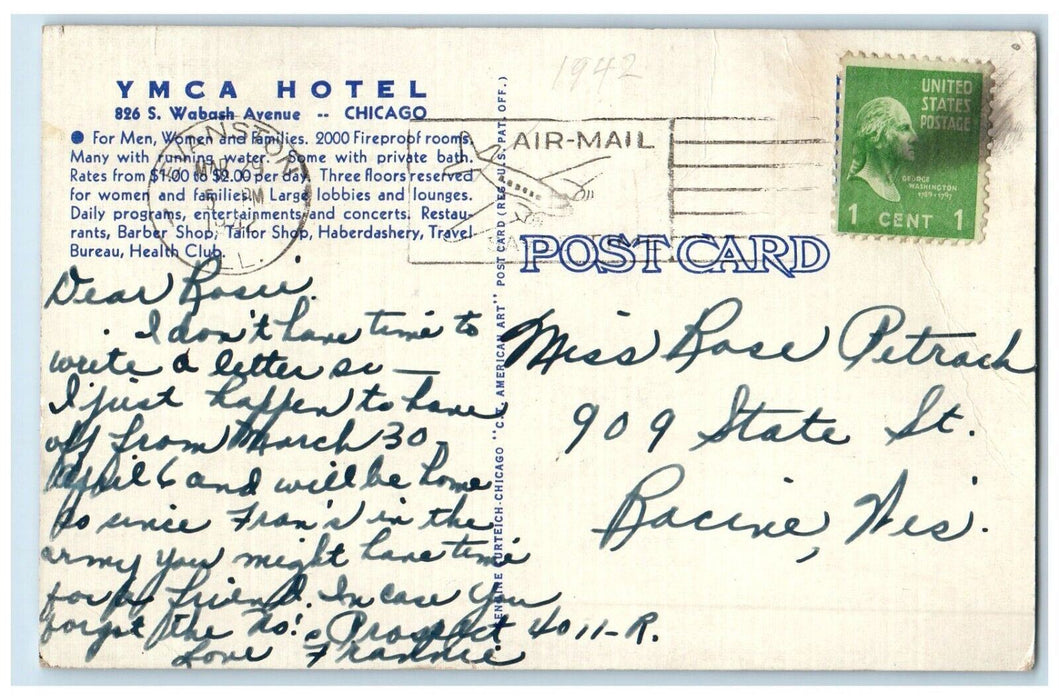 1942
YMCA HOTEL
826 S. Wabash Avenue -- CHICAGO
● For Men, Women and Families. 2000 Fireproof rooms.
Many with running water. Some with private bath.
Rates from $1.00 to $2.00 per day. Three floors reserved
for women and families. Large lobbies and lounges.
Daily programs, entertainments and concerts. Restau-
rants, Barber Shop, Tailor Shop, Haberdashery, Travel
Bureau, Health Club.
EVANSTON
ILL.
AIR-MAIL
UNITED
STATES
POSTAGE
GEORGE
WASHINGTON
1789-1797
1 CENT 1
POST CARD
POST CARD (REG. U.S. PAT. OFF.)
GENUINE CURTEICH-CHICAGO "C.T. AMERICAN ART"
Dear Rosie,
I don't have time to
write a letter so —
I just happen to have
off from March 30
April 6 and will be home
so since Fran's in the
army you might have time
for a friend. In case you
forgot the no: Prospect 4011-R.
Love Frannie
Miss Rose Petrach
909 State St.
Racine, Wis.